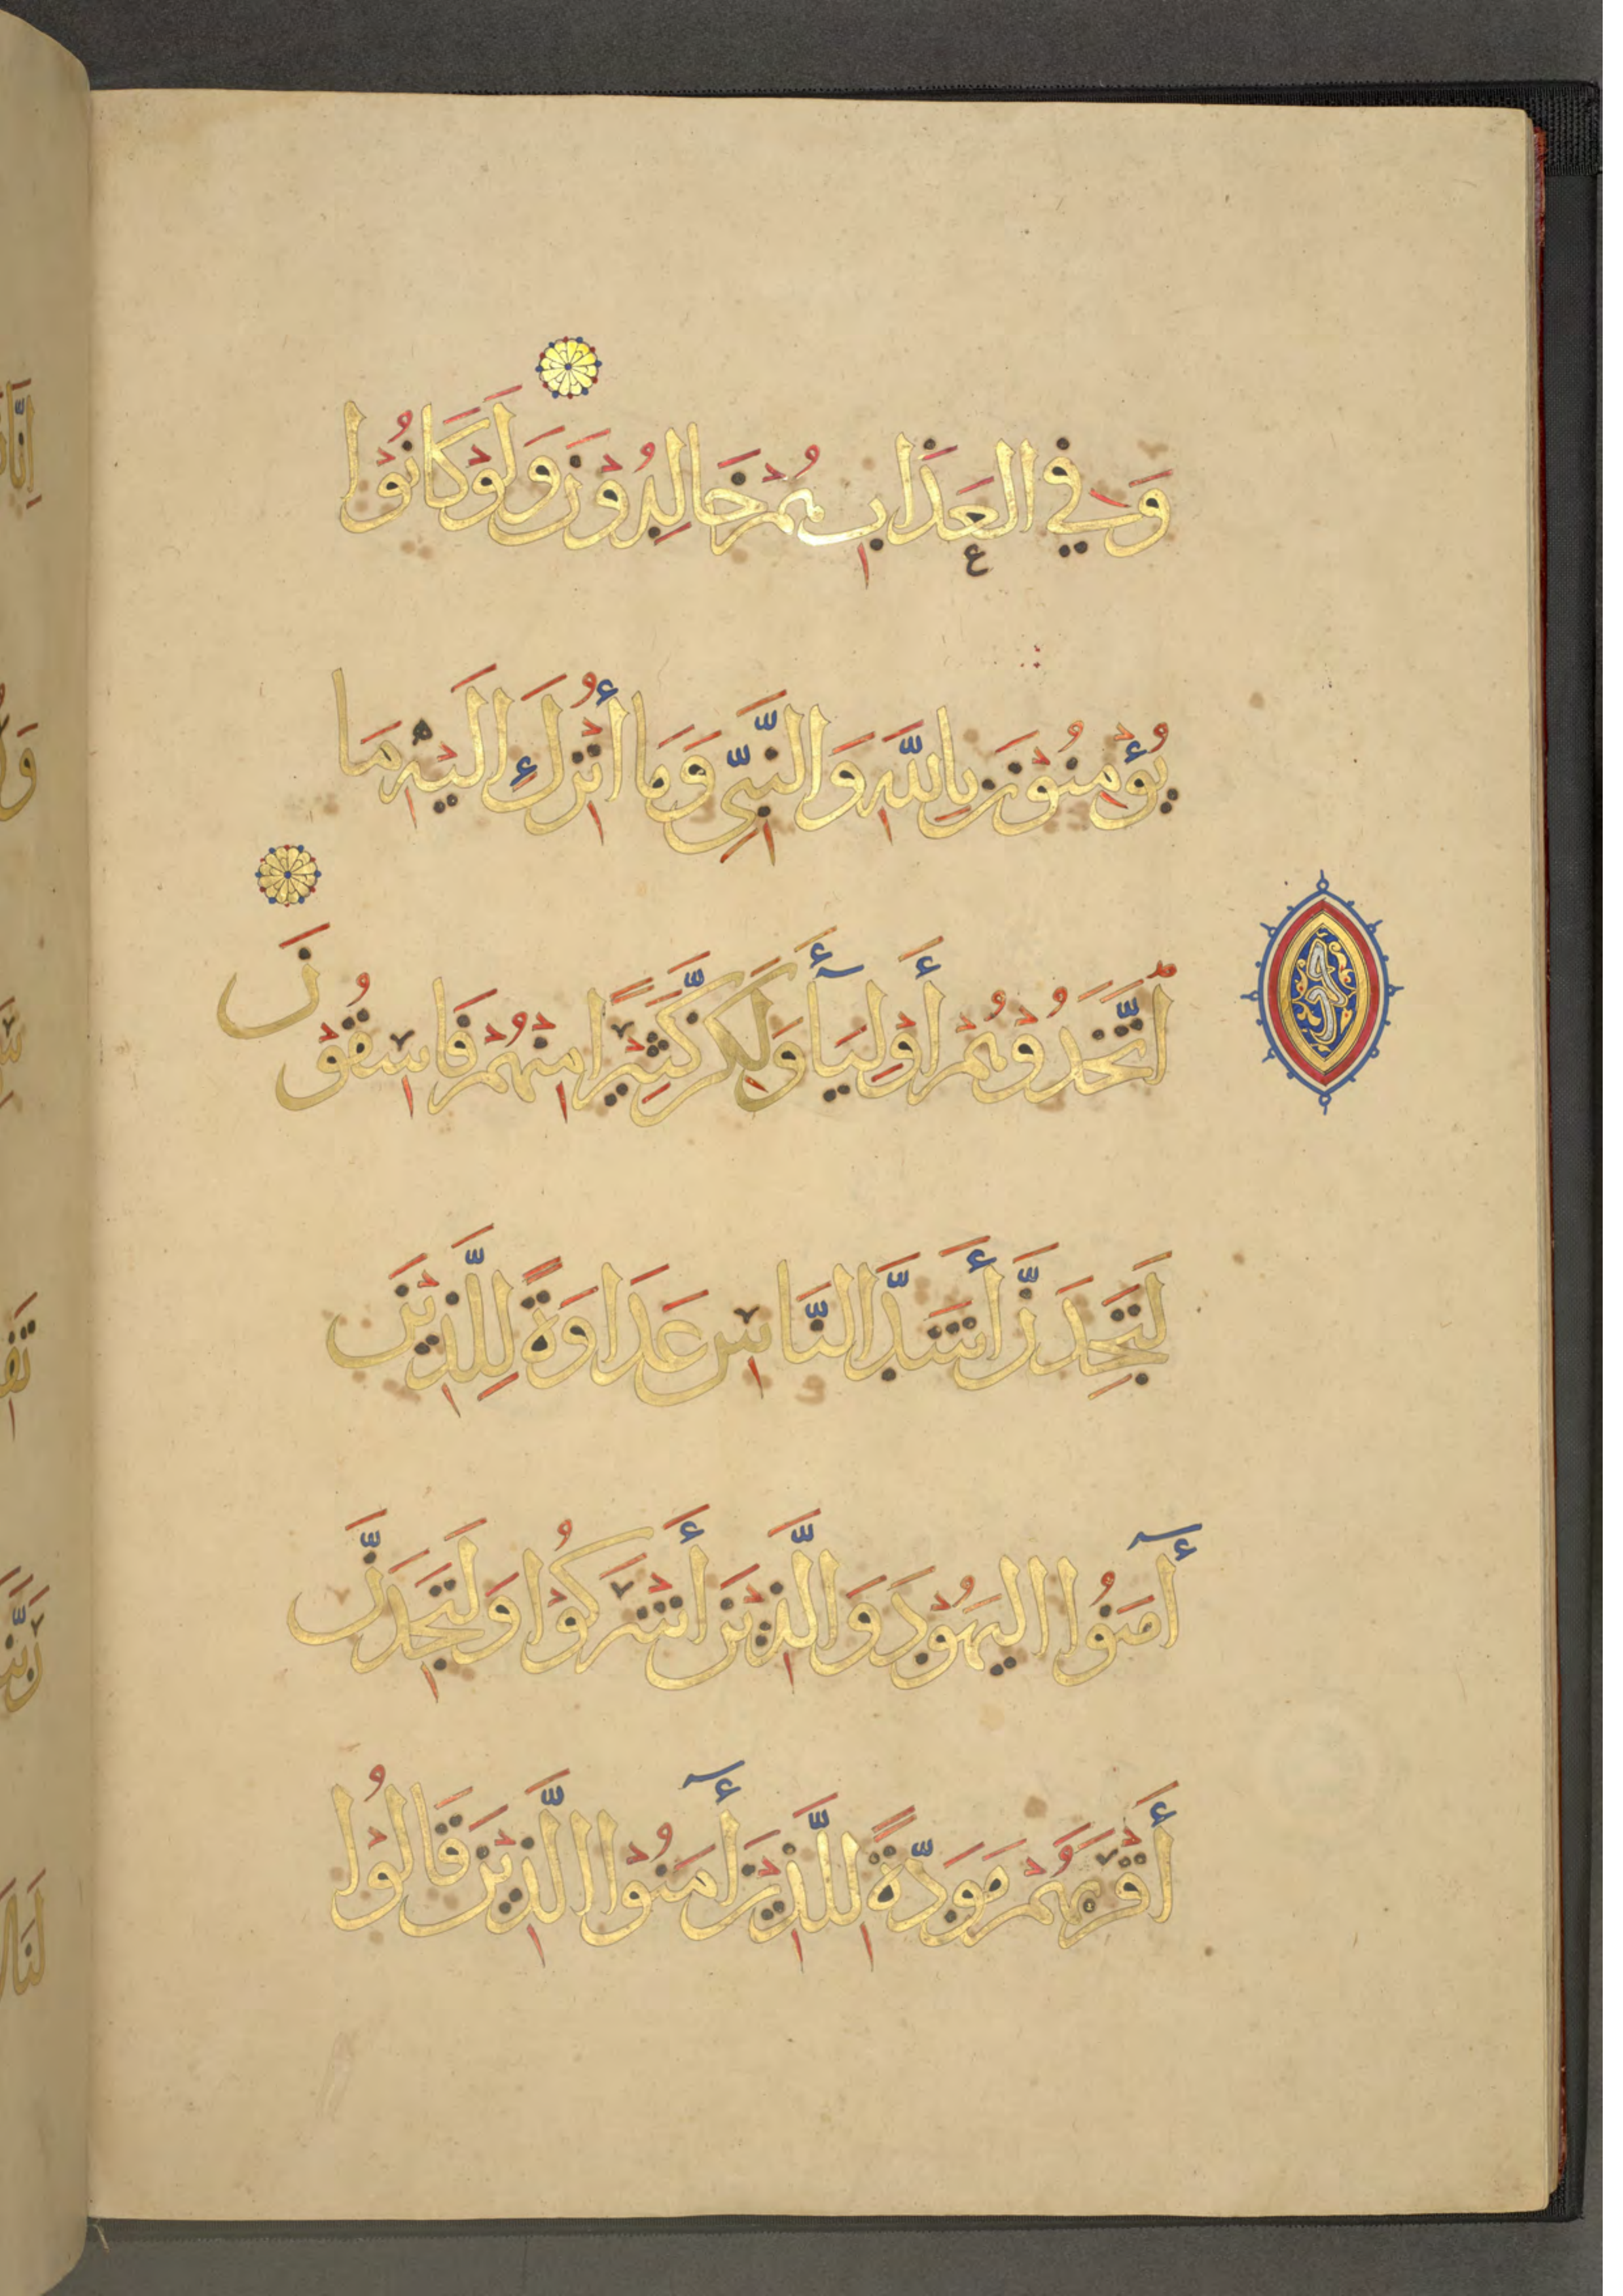 وَفِي العَذَابِ هُمْ خَالِدُوْنَ وَلَوْ كَانُوْا
يُؤْمِنُوْنَ بِاللَّهِ وَالنَّبِيِّ وَمَا أُنْزِلَ إِلَيْهِ مَا
اتَّخَذُوْهُمْ أَوْلِيَآءَ وَلَكِنَّ كَثِيْرًا مِنْهُمْ فَاسِقُوْنَ
لَتَجِدَنَّ أَشَدَّ النَّاسِ عَدَاوَةً لِلَّذِيْنَ
آمَنُوا اليَهُوْدَ وَالَّذِيْنَ أَشْرَكُوْا وَلَتَجِدَنَّ
أَقْرَبَهُمْ مَوَدَّةً لِلَّذِيْنَ آمَنُوْا الَّذِيْنَ قَالُوْا